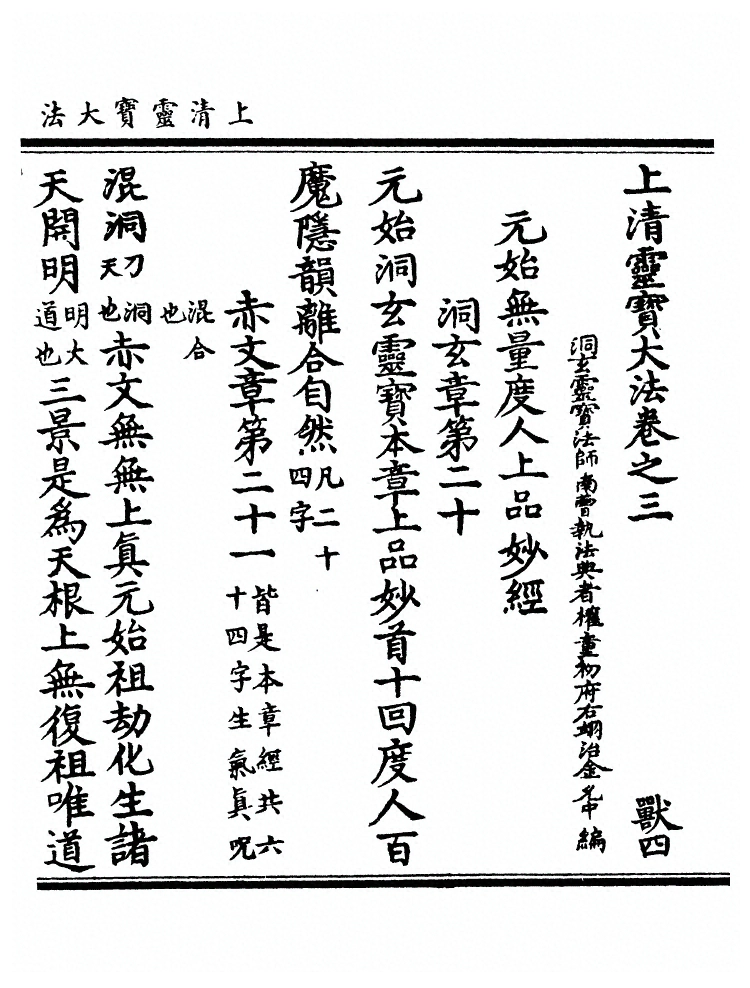 上清靈寶大法
上清靈寶大法卷之三 獸四
洞玄靈寶法師南曹執法典者權童初府右翊治金允中編
元始無量度人上品妙經
洞玄章第二十
元始洞玄靈寶本章上品妙首十回度人百
魔隱韻離合自然凡二十四字
赤文章第二十一皆是本章經共六十四字生氣真呪
混合也
混洞刀洞天也赤文無無上真元始祖劫化生諸
天開明明大道也三景是為天根上無復祖唯道